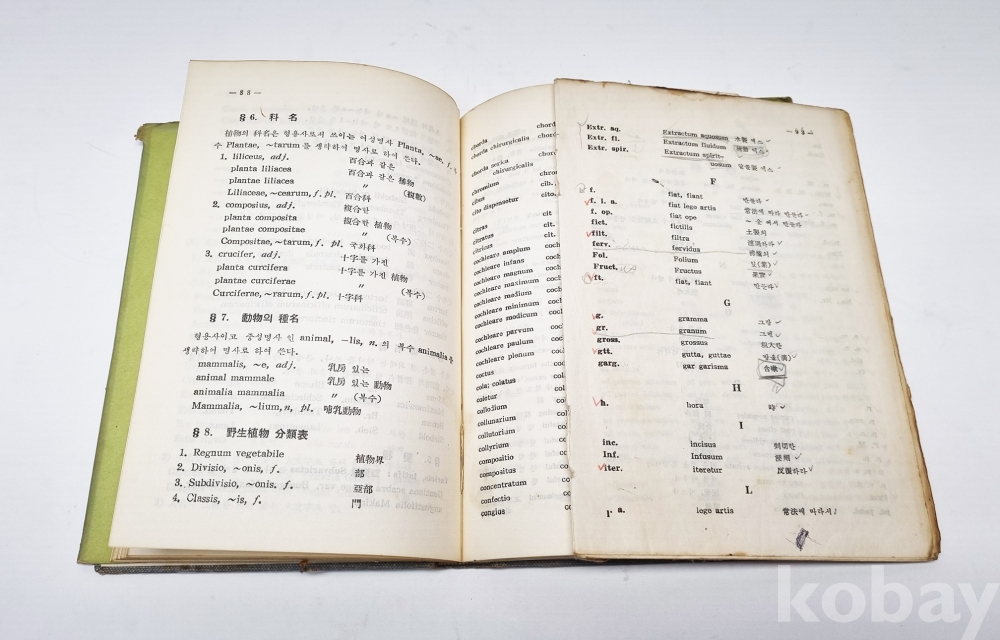 — 88 —
§ 6. 科名
植物의 科名은 형용사로서 쓰이는 여성명사 Planta, ~ae, f.
수 Plantae, ~tarum를 생략하여 명사로 하여 쓴다.
1. liliceus, adj. 百合과 같은
planta liliacea 百合과 같은 植物
plantae liliaceae 〃 (複數)
Liliaceae, ~cearum, f. pl. 百合科
2. composius, adj. 複合한
planta composita 複合한 植物
plantae compositae 〃 (복수)
Compositae, ~tarum, f. pl. 국화科
3. crucifer, adj. 十字를 가진
planta curcifera 十字를 가진 植物
plantae curciferae 〃 (복수)
Curciferae, ~rarum, f. pl. 十字科
§ 7. 動物의 種名
형용사이고 중성명사 인 animal, —lis, n. 의 복수 animalia를
생략하여 명사로 하여 쓴다.
mammalis, ~e, adj. 乳房 있는
animal mammale 乳房 있는 動物
animalia mammalia 〃 (복수)
Mammalia, ~lium, n, pl. 哺乳動物
§ 8. 野生植物 分類表
1. Regnum vegetabile 植物界
2. Divisio, ~onis, f. 部
3. Subdivisio, ~onis. f. 亞部
4. Classis, ~is, f. 門
chorda chord
chorda chirurgicalis chord
chorda serica chord
chirurgicalis
chromium cib.
cibus cito.
cito dispensetur
citras cit
citratus cit
citricus cit
cochleare amplum coch
cochleare infans coch
cochleare magnum coch
cochleare maximum coch
cochleare medium coch
cochleare minimum coch
cochleare modicum coch
cochleare parvum coch
cochleare paulum coch
cochleare plenum coch
coctus coc
cola; colatus col
coletur col
collodium col
collunarium col
collutorium col
collyrium col
compositio co
compositus co
concentratum co
confectio co
congius co
Extr. aq. Extractum aquosum 水製 엑스
Extr. fl. Extractum fluidum 流動 엑스
Extr. spir. Extractum spirit-
uosum 알콜製 엑스
F
f. fiat, fiant 만들라
f. l. a. fiat lege artis 常法에 따라 만들라
f. op. fiat ope ~을 써서 만들라
fict. fictilis 土製의
filt. filtra 濾過하라
ferv. fervidus 沸騰의
Fol. Folium 잎(葉)
Fruct. Fructus 果實
ft. fiat, fiant 만들라
G
g. gramma 그람
gr. granum 그레인
gross. grossus 巨大한
gtt. gutta, guttae 방울(滴)
garg. gar garisma 含嗽
H
h. hora 時
I
inc. incisus 剉切한
Inf. Infusum 浸劑
iter. iteretur 反覆하라
L
l. a. lege artis 常法에 따라서
kobay